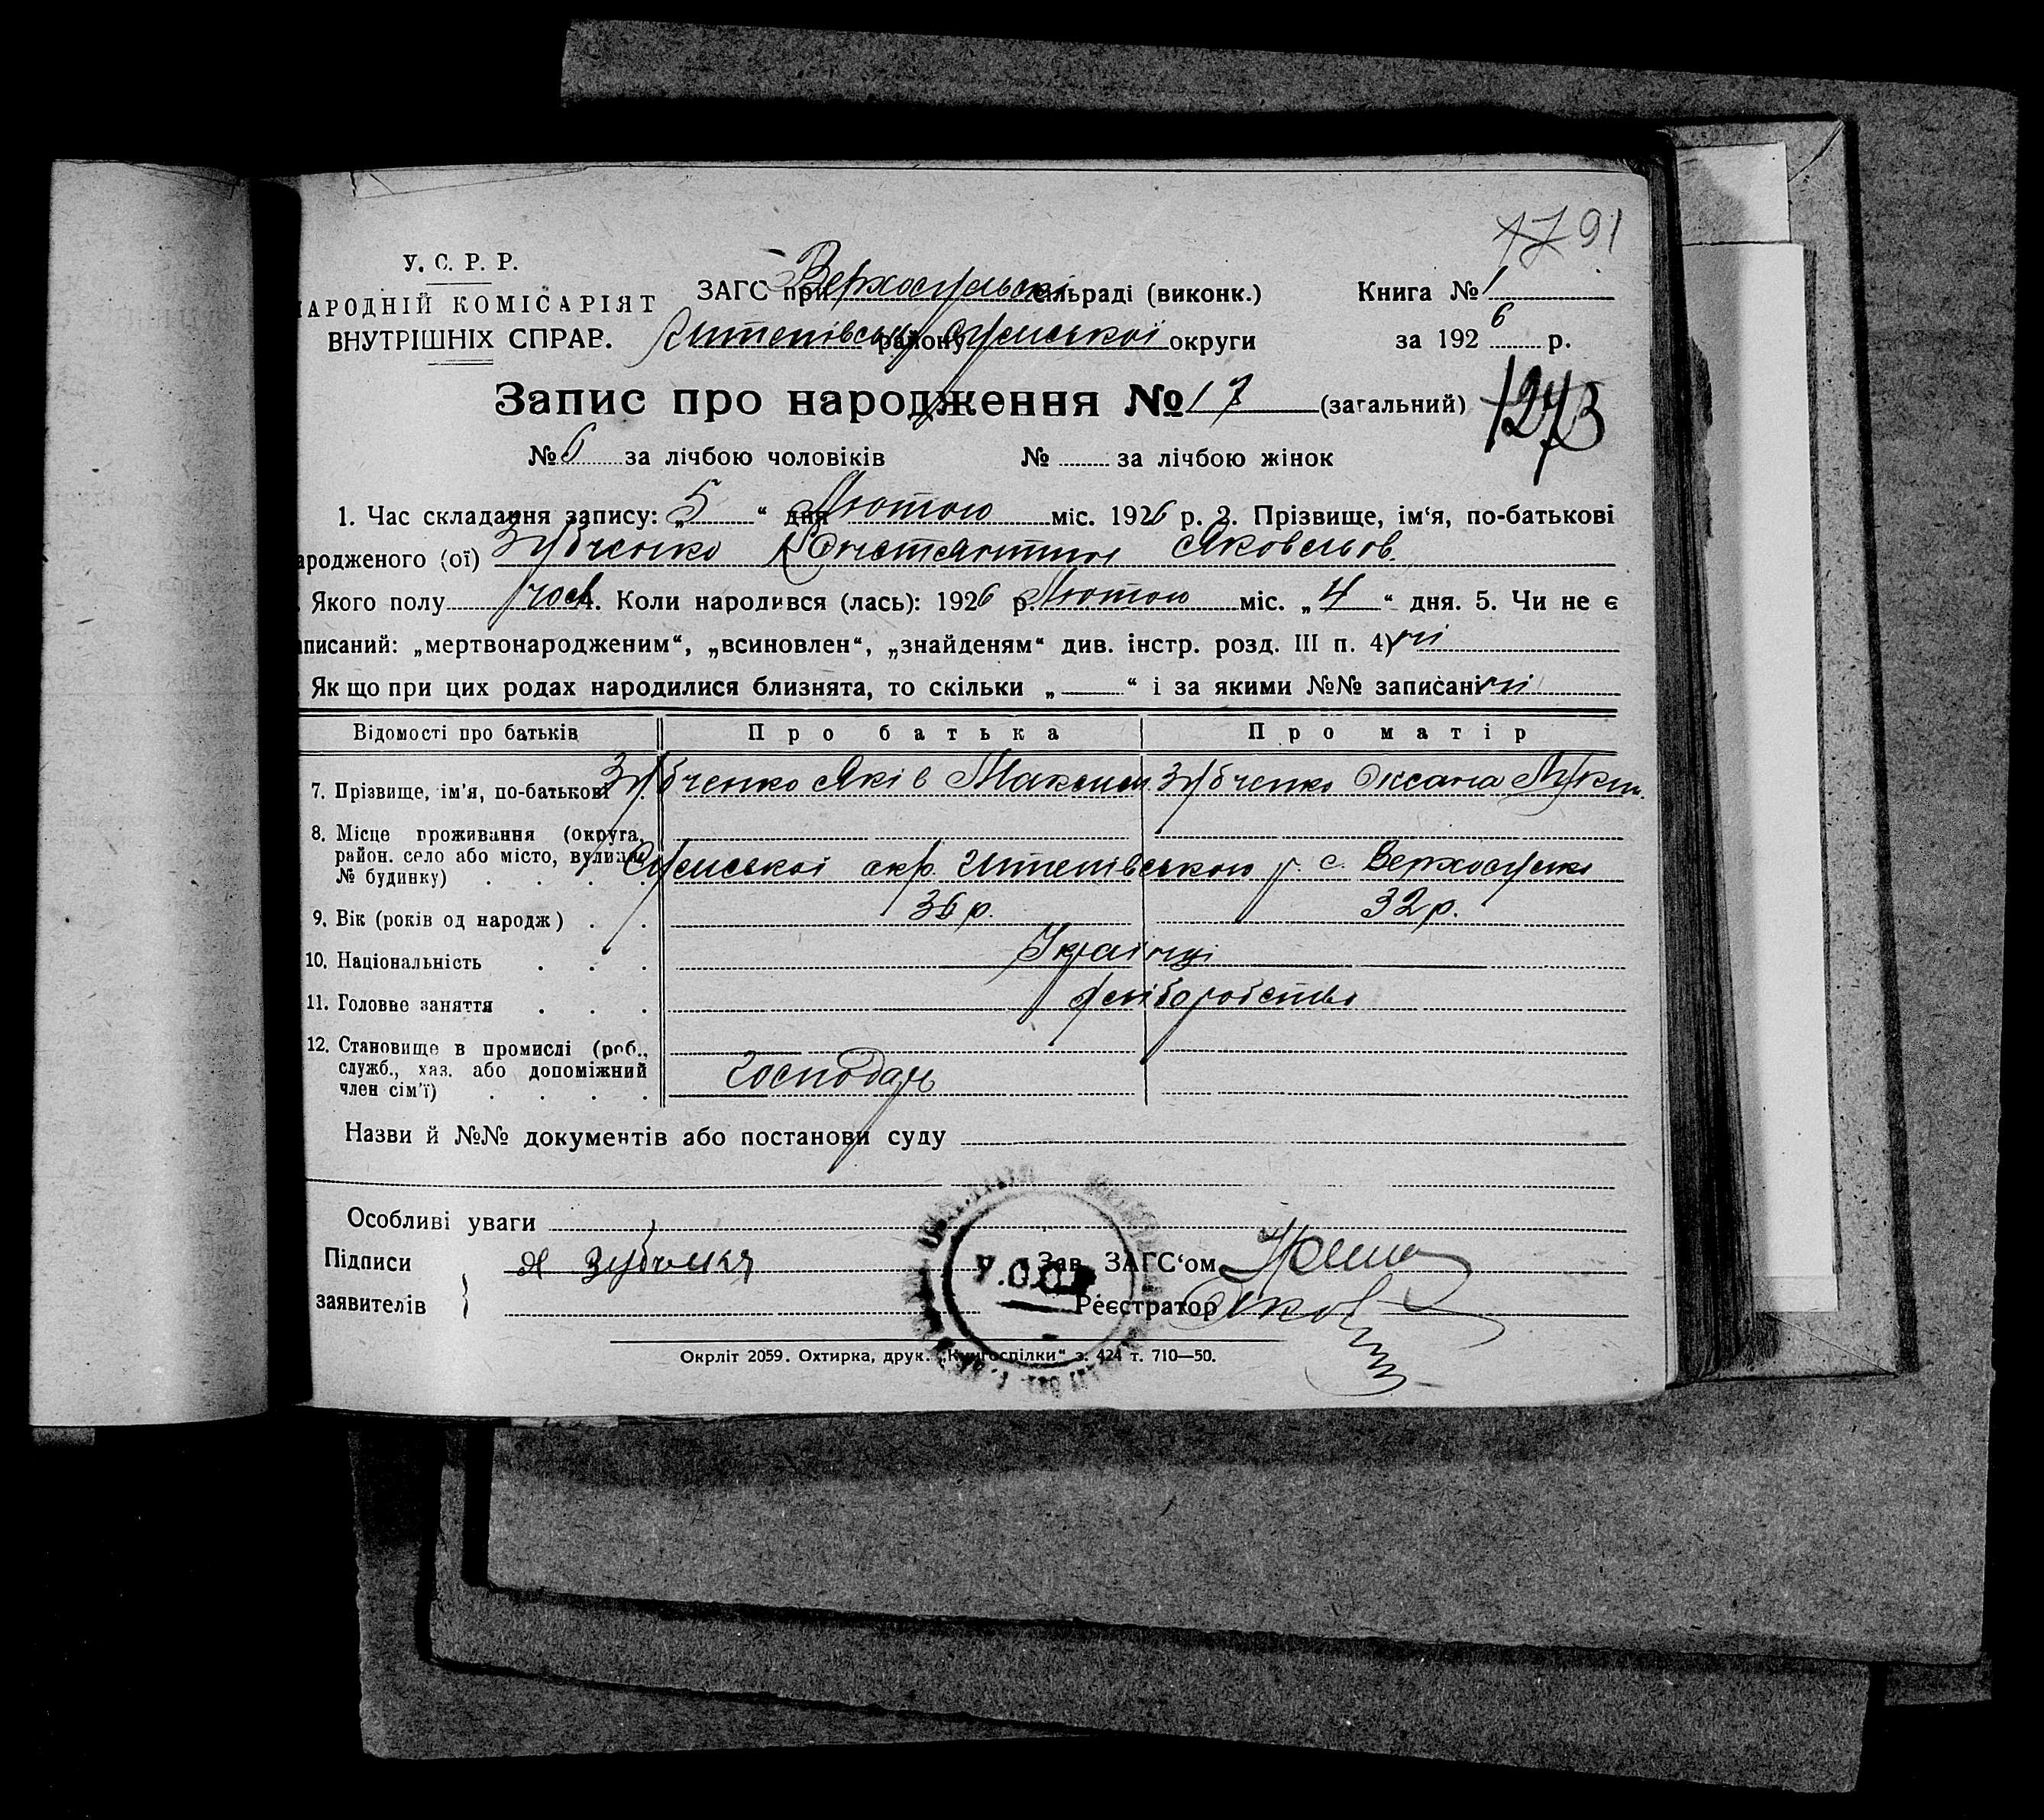 91
У. С. Р. Р.
НАРОДНІЙ КОМІСАРІЯТ
ВНУТРІШНІХ СПРАВ.
ЗАГС при Верхосульські сільраді (виконк.)
Штепівськ району Сумської округи
Книга № 1
за 1926 р.
Запис про народження № 17 (загальний)
1273
№ 6 за лічбою чоловіків № за лічбою жінок
1. Час складання запису: „5“ дня Лютого міс. 1926 р. 2. Прізвище, ім‘я, по-батькові
ародженого (ої) Зубченко Константин Яковельов.
Якого полу чол. 4. Коли народився (лась): 1926 р. Лютого міс. „4“ дня. 5. Чи не є
аписаний: „мертвонародженим“, „всиновлен“, „знайденям“ див. інстр. розд. III п. 4) ні
Якщо при цих родах народилися близнята, то скільки „ “ і за якими №№ записані ні
Відомості про батьків Про батька Про матір
7. Прізвище, ім'я, по-батькові Зубченко Яків Максим. Зубченко Оксана Лукин.
8. Місце проживання (округа,
район. село або місто, вулиця,
№ будинку) Сумської окр. Штепівського р. с. Верхосулка
9. Вік (років од народж) 36 р. 32 р.
10. Національність Українці
11. Головне заняття Хліборобство
12. Становище в промислі (роб.,
служб., хаз. або допоміжний
член сім'ї) Господарь
Назви й №№ документів або постанови суду
Особливі уваги
Підписи
заявителів
Я Зубченко
Зав. ЗАГС‘ом
Реєстратор
Окрліт 2059. Охтирка, друк. „Книгоспілки“ з. 424 т. 710—50.